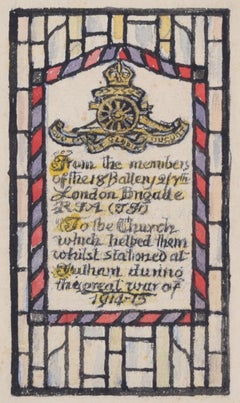 From the members
of the 18 Battery 2/7th
London Brigade
R.F.A. (T.F.)
To the Church
which helped them
whilst stationed at
Fulham during
the great war of
1914-15